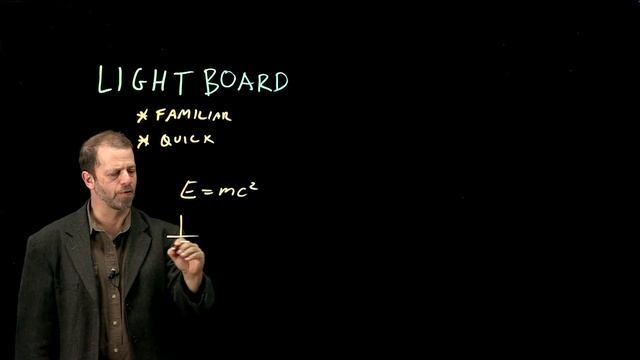 LIGHTBOARD
* FAMILIAR
* QUICK
E = mc²